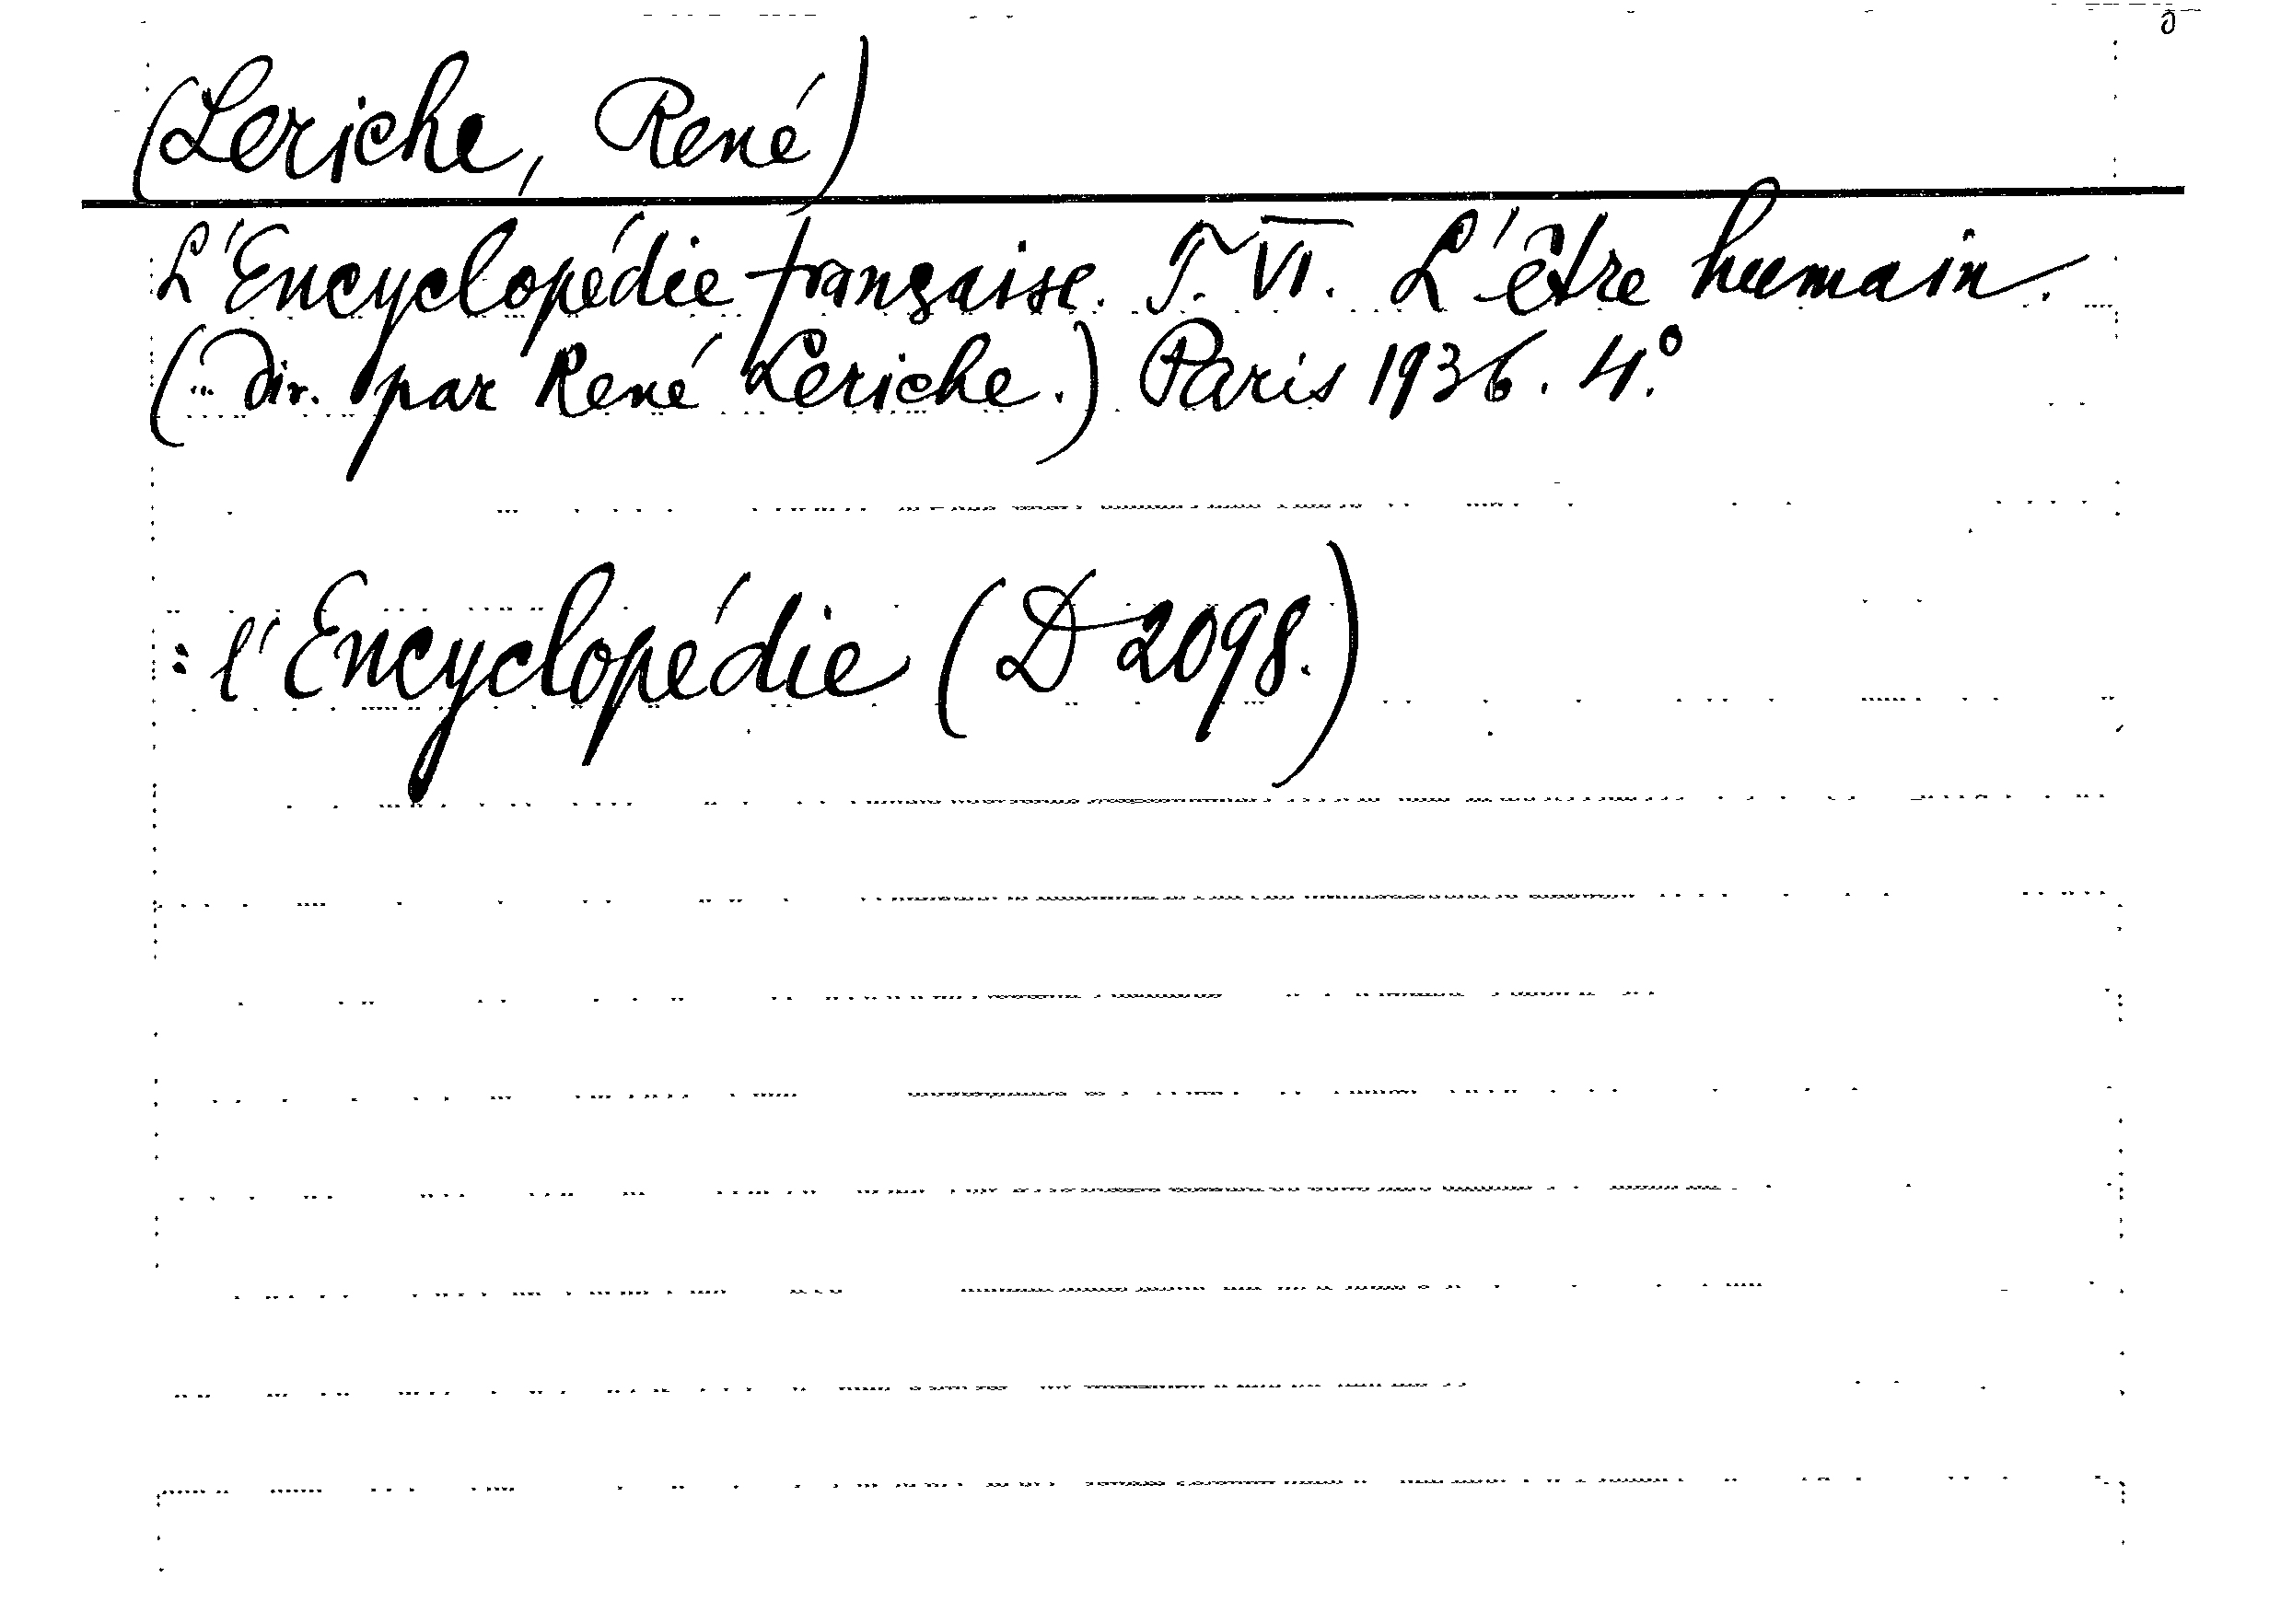 (Leriche, René)
L'Encyclopédie française. T. VI. L'être humain.
(... dir. par René Leriche.) Paris 1936. 4.°
: l'Encyclopédie (D 2098.)